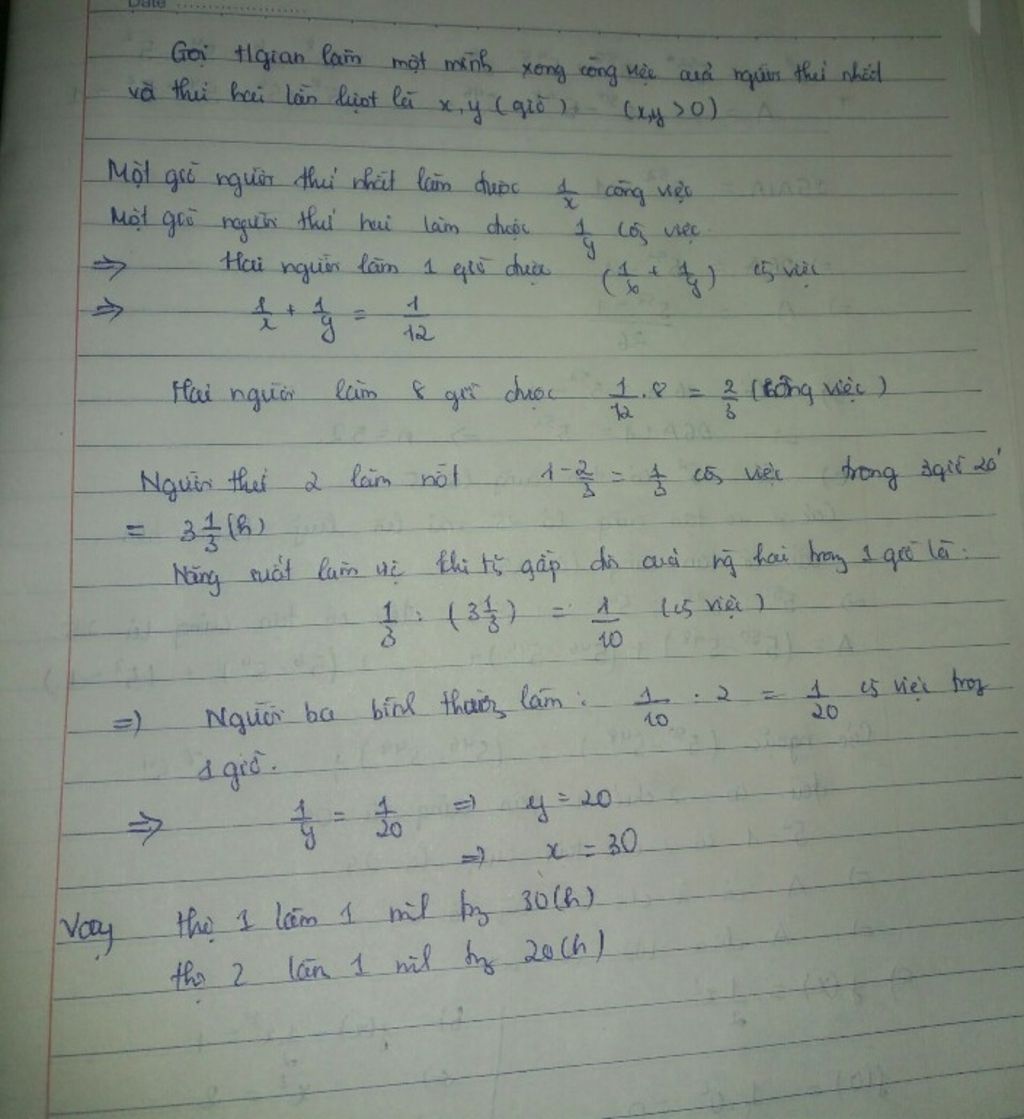 Date
Gọi tgian làm một mình xong công việc của người thứ nhất
và thứ hai lần lượt là x, y (giờ) (x,y > 0)
Một giờ người thứ nhất làm được 1/x công việc
Một giờ người thứ hai làm được 1/y cg việc
=> Hai người làm 1 giờ được (1/x + 1/y) cg việc
=> 1/x + 1/y = 1/12
Hai người làm 8 giờ được 1/12 . 8 = 2/3 (công việc)
Người thứ 2 làm nốt 1 - 2/3 = 1/3 cg việc trong 3giờ 20'
= 3 1/3 (h)
Năng suất làm vc khi tg gấp đôi của ng hai trong 1 giờ là:
1/3 : (3 1/3) = 1/10 (cg việc)
=) Người bình thường làm: 1/10 : 2 = 1/20 cg việc trong
1 giờ.
=> 1/y = 1/20 => y = 20
=> x = 30
Vậy thợ 1 làm 1 mil trg 30(h)
thợ 2 làm 1 mil trg 20(h)